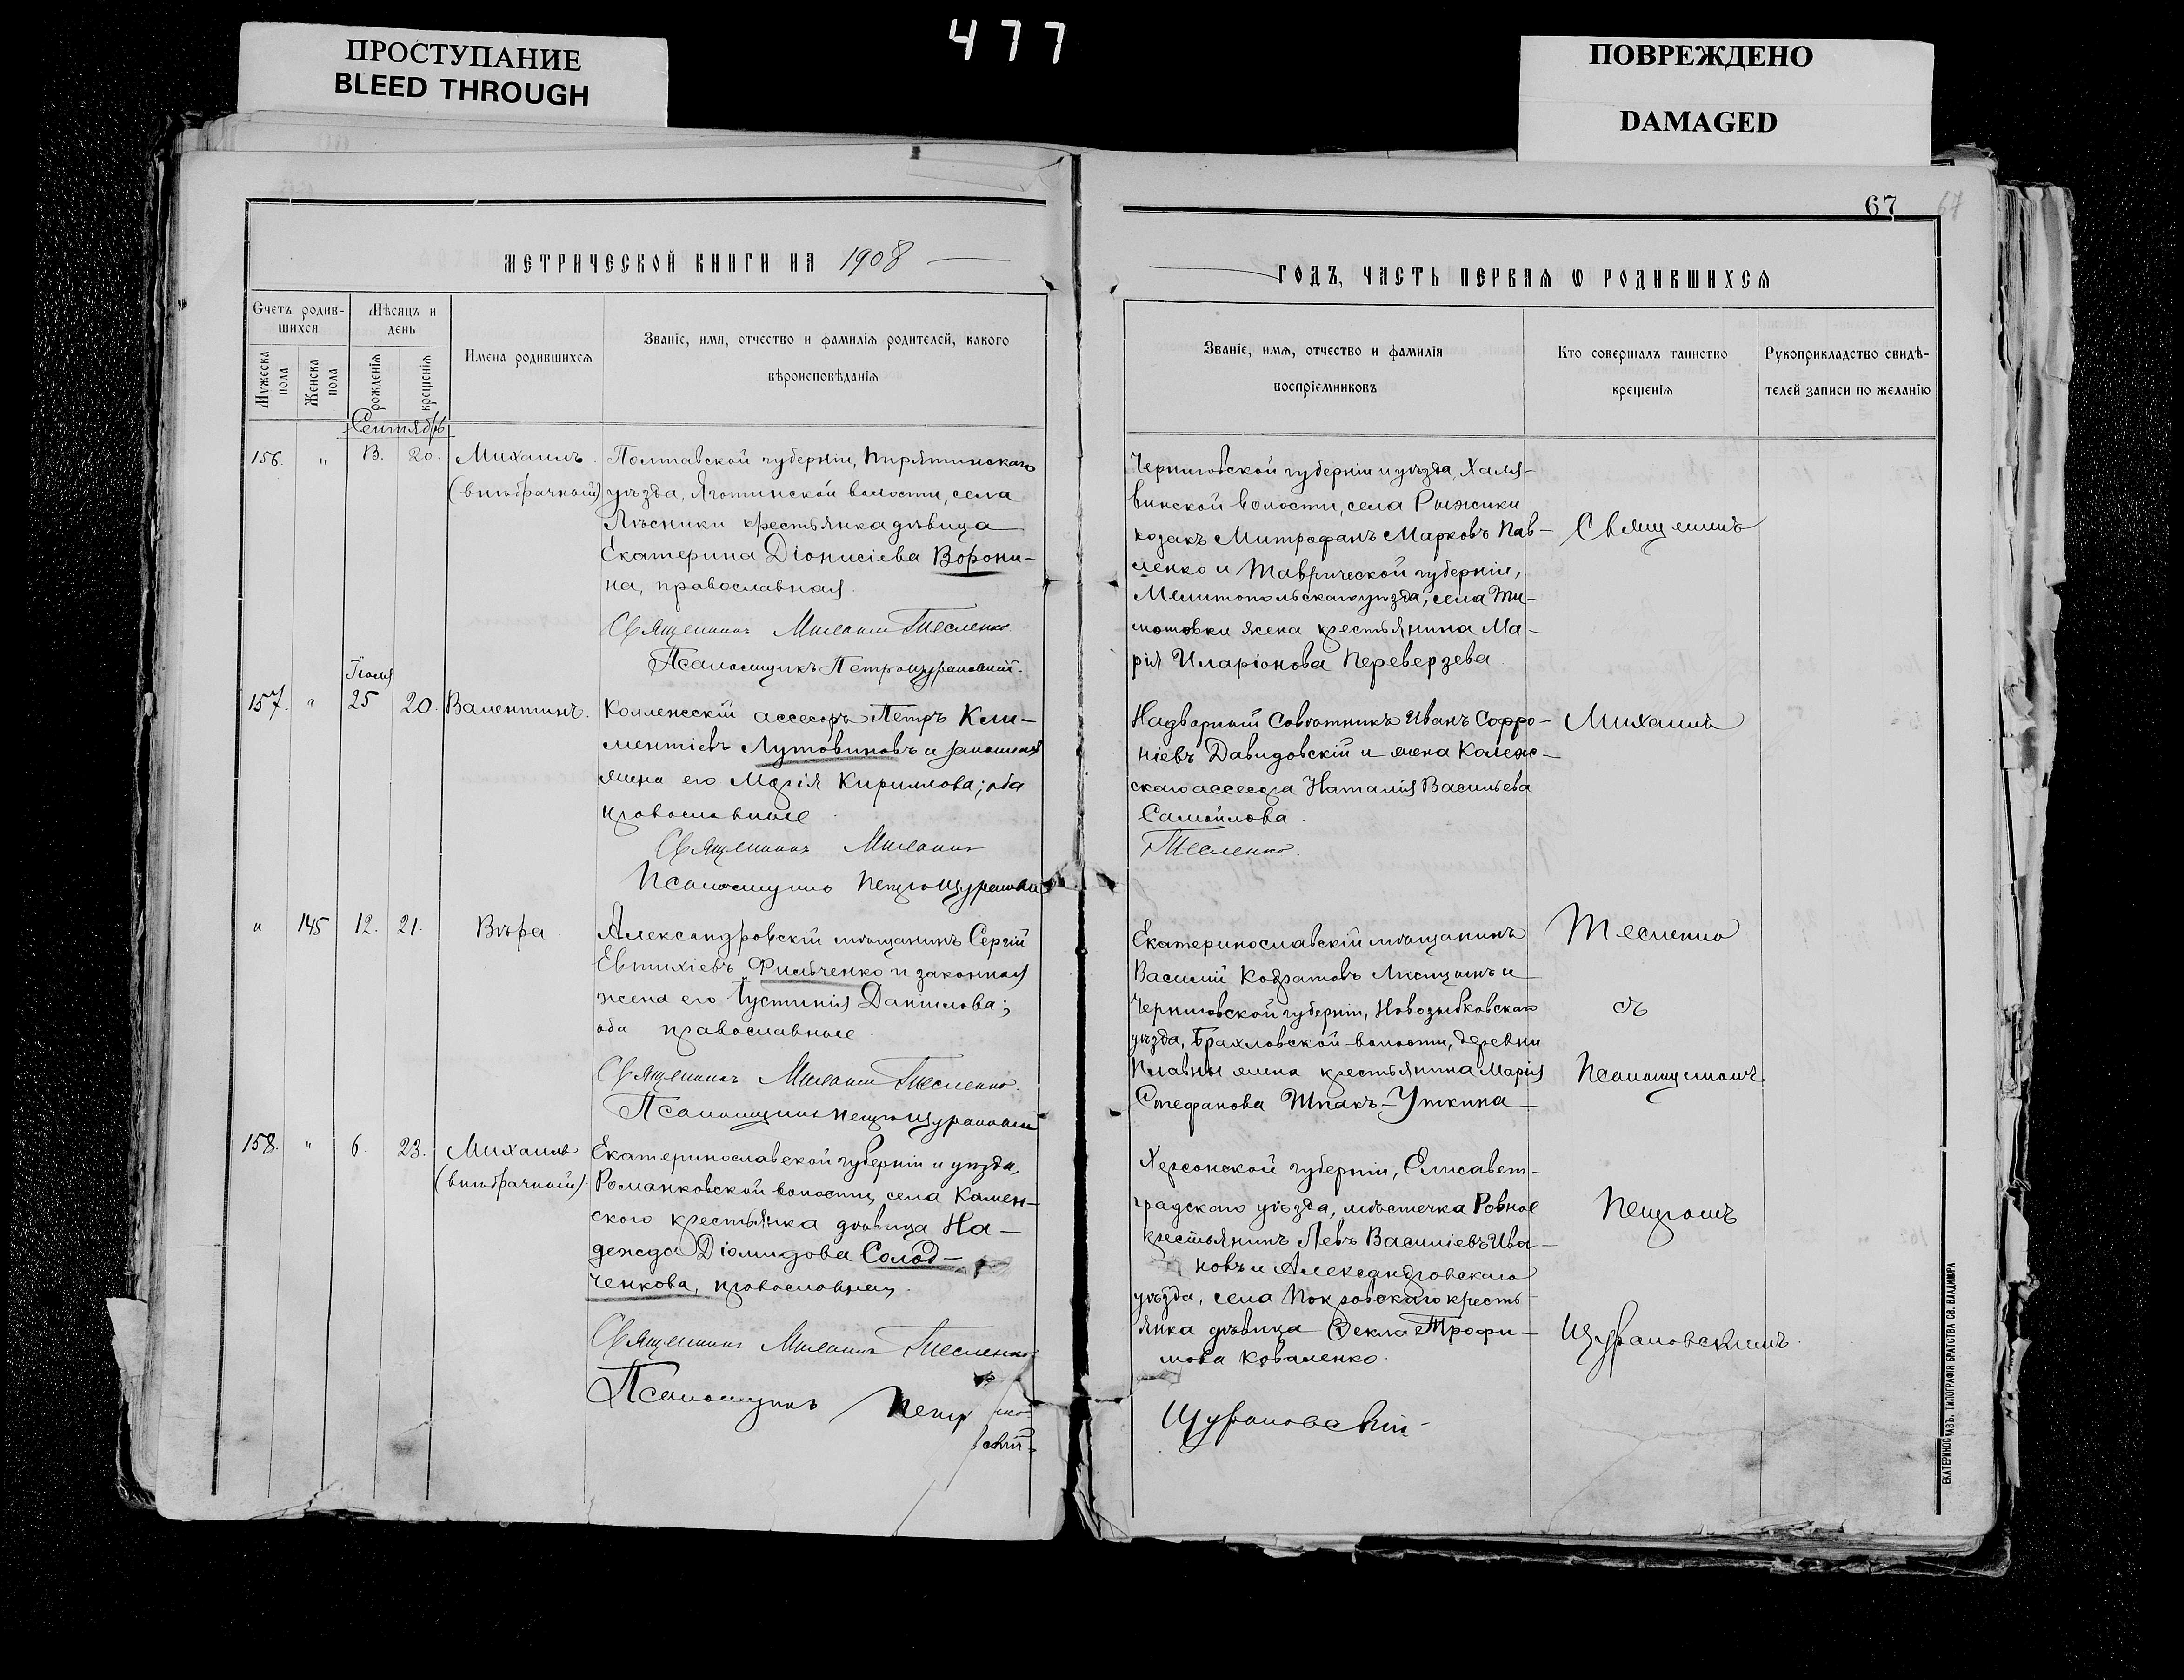 477
ПРОСТУПАНИЕ
BLEED THROUGH
ПОВРЕЖДЕНО
DAMAGED
67
67
МЕТРИЧЕСКОЙ КНИГИ НА 1908
Счетъ родив-
шихся
Мѣсяцъ и
день
Имена родившихся
Званіе, имя, отчество и фамилія родителей, какого
вѣроисповѣданія
Мужеска пола
Женска пола
рожденія
крещенія
Сентябрь
156. " 20. Михаилъ (внѣбрачный)
Полтавской губерніи, Пирятинскаго
уѣзда, Яготинской волости, села
Лѣсники крестьянка дѣвица
Екатерина Діонисіева Ворони-
на, православная.
Священникъ Тесленко
Псаломщикъ Петръ Щурановскій.
Іюля
157. " 25 20. Валентинъ.
Коллежскій ассесоръ Петръ Кли-
ментіевъ Лутовиновъ и законная
жена его Марія Кириллова; оба
православные
Священникъ
Псаломщикъ Петръ Щурановскій
" 145 12. 21. Вѣра
Александровскій мѣщанинъ Сергій
Евтихіевъ Фильченко и законная
жена его Іустинія Даніилова;
оба православные.
Священникъ Тесленко.
Псаломщикъ Петръ Щурановскій
158. " 6. 23. Михаилъ (внѣбрачный)
Екатеринославской губерніи и уѣзда,
Романковской волости, села Камен-
ского крестьянка дѣвица На-
дежда Діомидова Солод-
ченкова, православная.
Священникъ Тесленко
Псаломщикъ Петр
ГОДЪ, ЧАСТЬ ПЕРВАЯ Ѡ РОДИВШИХСЯ
Званіе, имя, отчество и фамилія
воспріемниковъ
Кто совершалъ таинство
крещенія
Рукоприкладство свидѣ-
телей записи по желанію
Черниговской губерніи и уѣзда, Халя-
винской волости, села Рыжики
козакъ Митрофанъ Марковъ Пав-
ленко и Таврической губерніи,
Мелитопольскаго уѣзда, села Ти-
мошовки жена крестьянина Ма-
рія Иларіонова Переверзева.
Надворный Совѣтникъ Иванъ Софро-
ніевъ Давидовскій и жена Колеж-
скаго ассесора Наталія Васильева
Самойлова.
Тесленко.
Екатеринославскій мѣщанинъ
Василій и
Черниговской губерніи, Новозыбковскаго
уѣзда, Брахловской волости, деревни
Плавны жена крестьянина Марія
Стефанова Шпакъ-Уткина
Херсонской губерніи, Елисавет-
градскаго уѣзда, мѣстечка Ровное
крестьянинъ Левъ Василіевъ Ива-
новъ и Александровскаго
уѣзда, села Покровскаго кресть-
янка дѣвица Ѳекла Трофи-
мова Коваленко.
Щурановскій
Священникъ
Михаилъ
Тесленко
съ
Псаломщикомъ
Петромъ
Щурановскимъ.
ЕКАТЕРИНОСЛАВЪ. ТИПОГРАФІЯ БРАТСТВА СВ. ВЛАДИМІРА